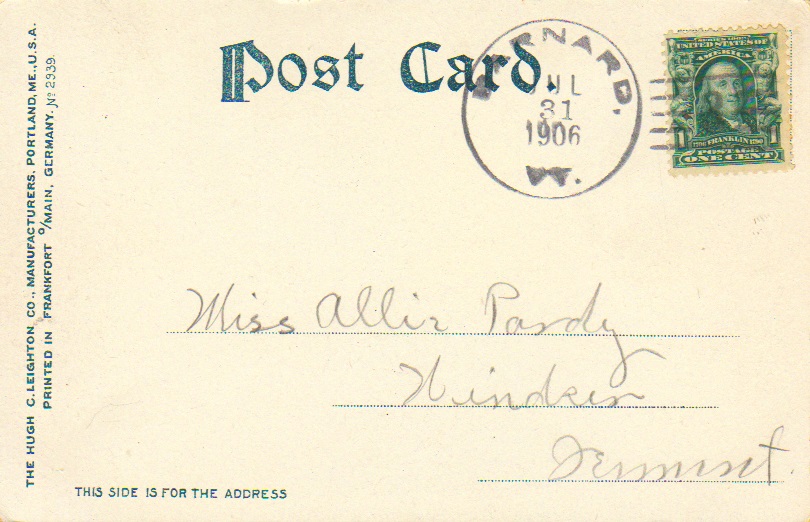 Post Card.
BARNARD,
JUL
31
1906
VT.
SERIES 1902
UNITED STATES OF
AMERICA
1706 FRANKLIN 1790
1 1
POSTAGE
ONE CENT
Miss Allie Pardy
Windsor
Vermont.
THIS SIDE IS FOR THE ADDRESS
THE HUGH C. LEIGHTON, CO., MANUFACTURERS, PORTLAND, ME., U.S.A.
PRINTED IN FRANKFORT O/MAIN, GERMANY. No 2939.